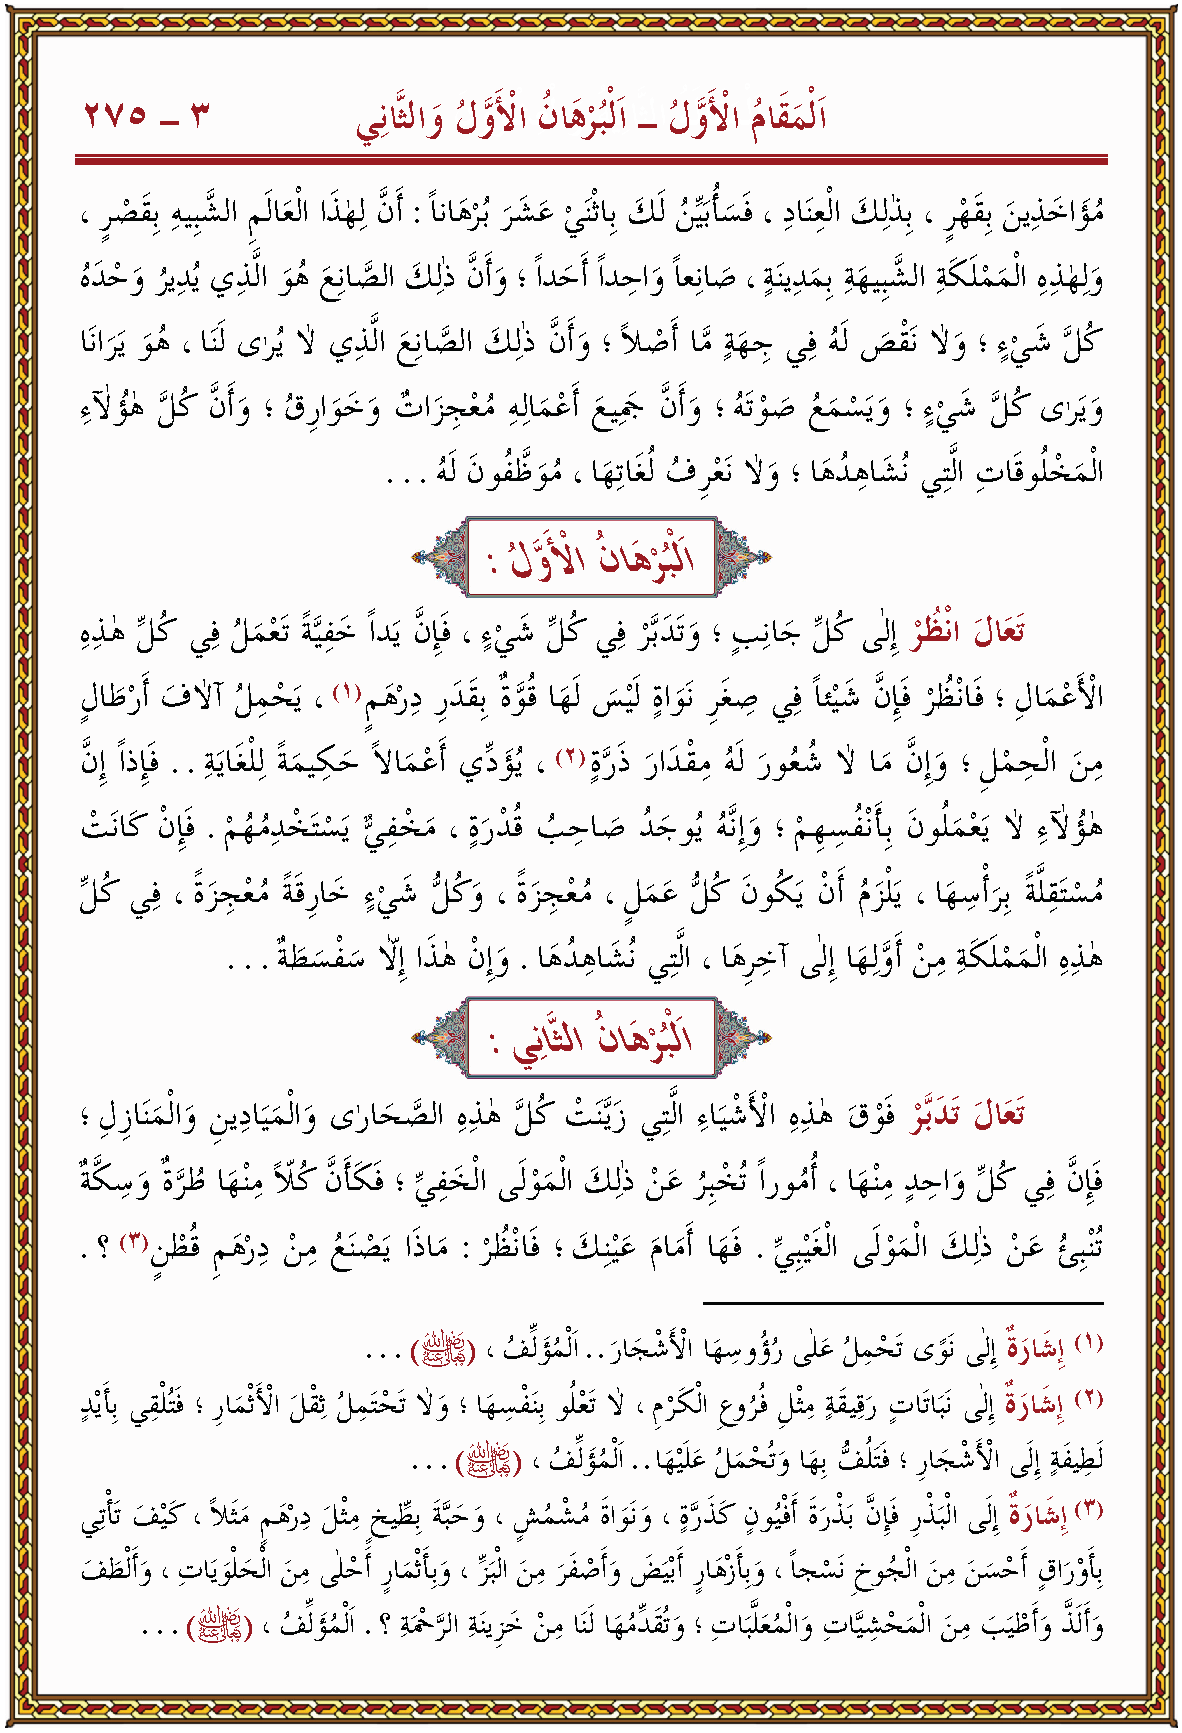 اَلْمَقَامُ الْأَوَّلُ ـ اَلْبُرْهَانُ الْأَوَّلُ وَالثَّانِي ٣ ـ ٢٧٥
مُؤَاخَذِينَ بِقَهْرٍ ، بِذٰلِكَ الْعِنَادِ ، فَسَأُبَيِّنُ لَكَ بِاثْنَيْ عَشَرَ بُرْهَاناً : أَنَّ لِهٰذَا الْعَالَمِ الشَّبِيهِ بِقَصْرٍ ،
وَلِهٰذِهِ الْمَمْلَكَةِ الشَّبِيهَةِ بِمَدِينَةٍ ، صَانِعاً وَاحِداً أَحَداً ؛ وَأَنَّ ذٰلِكَ الصَّانِعَ هُوَ الَّذِي يُدِيرُ وَحْدَهُ
كُلَّ شَيْءٍ ؛ وَلاٰ نَقْصَ لَهُ فِي جِهَةٍ مَّا أَصْلاً ؛ وَأَنَّ ذٰلِكَ الصَّانِعَ الَّذِي لاٰ يُرٰى لَنَا ، هُوَ يَرَانَا
وَيَرٰى كُلَّ شَيْءٍ ؛ وَيَسْمَعُ صَوْتَهُ ؛ وَأَنَّ جَمِيعَ أَعْمَالِهِ مُعْجِزَاتٌ وَخَوَارِقُ ؛ وَأَنَّ كُلَّ هٰؤُلاٰءِ
الْمَخْلُوقَاتِ الَّتِي نُشَاهِدُهَا ؛ وَلاٰ نَعْرِفُ لُغَاتِهَا ، مُوَظَّفُونَ لَهُ . . .
اَلْبُرْهَانُ الْأَوَّلُ :
تَعَالَ انْظُرْ إِلٰى كُلِّ جَانِبٍ ؛ وَتَدَبَّرْ فِي كُلِّ شَيْءٍ ، فَإِنَّ يَداً خَفِيَّةً تَعْمَلُ فِي كُلِّ هٰذِهِ
الْأَعْمَالِ ؛ فَانْظُرْ فَإِنَّ شَيْئاً فِي صِغَرِ نَوَاةٍ لَيْسَ لَهَا قُوَّةٌ بِقَدَرِ دِرْهَمٍ (١) ، يَحْمِلُ آلاٰفَ أَرْطَالٍ
مِنَ الْحِمْلِ ؛ وَإِنَّ مَا لاٰ شُعُورَ لَهُ مِقْدَارَ ذَرَّةٍ (٢) ، يُؤَدِّي أَعْمَالاً حَكِيمَةً لِلْغَايَةِ . . فَإِذاً إِنَّ
هٰؤُلاٰءِ لاٰ يَعْمَلُونَ بِأَنْفُسِهِمْ ؛ وَإِنَّهُ يُوجَدُ صَاحِبُ قُدْرَةٍ ، مَخْفِيٌّ يَسْتَخْدِمُهُمْ . فَإِنْ كَانَتْ
مُسْتَقِلَّةً بِرَأْسِهَا ، يَلْزَمُ أَنْ يَكُونَ كُلُّ عَمَلٍ ، مُعْجِزَةً ، وَكُلُّ شَيْءٍ خَارِقَةً مُعْجِزَةً ، فِي كُلِّ
هٰذِهِ الْمَمْلَكَةِ مِنْ أَوَّلِهَا إِلٰى آخِرِهَا ، الَّتِي نُشَاهِدُهَا . وَإِنْ هٰذَا إِلاّٰ سَفْسَطَةٌ . . .
اَلْبُرْهَانُ الثَّانِي :
تَعَالَ تَدَبَّرْ فَوْقَ هٰذِهِ الْأَشْيَاءِ الَّتِي زَيَّنَتْ كُلَّ هٰذِهِ الصَّحَارٰى وَالْمَيَادِينِ وَالْمَنَازِلِ ؛
فَإِنَّ فِي كُلِّ وَاحِدٍ مِنْهَا ، أُمُوراً تُخْبِرُ عَنْ ذٰلِكَ الْمَوْلَى الْخَفِيِّ ؛ فَكَأَنَّ كُلاًّ مِنْهَا طُرَّةٌ وَسِكَّةٌ
تُنْبِئُ عَنْ ذٰلِكَ الْمَوْلَى الْغَيْبِيِّ . فَهَا أَمَامَ عَيْنِكَ ؛ فَانْظُرْ : مَاذَا يَصْنَعُ مِنْ دِرْهَمِ قُطْنٍ (٣) ؟ .
(١) إِشَارَةٌ إِلٰى نَوًى تَحْمِلُ عَلٰى رُؤُوسِهَا الْأَشْجَارَ . . اَلْمُؤَلِّفُ ، (رضي الله تعالى عنه) . . .
(٢) إِشَارَةٌ إِلٰى نَبَاتَاتٍ رَقِيقَةٍ مِثْلِ فُرُوعِ الْكَرْمِ ، لاٰ تَعْلُو بِنَفْسِهَا ؛ وَلاٰ تَحْتَمِلُ ثِقْلَ الْأَثْمَارِ ؛ فَتُلْقِي بِأَيْدٍ
لَطِيفَةٍ إِلَى الْأَشْجَارِ ؛ فَتَلُفُّ بِهَا وَتُحْمَلُ عَلَيْهَا . . اَلْمُؤَلِّفُ ، (رضي الله تعالى عنه) . . .
(٣) إِشَارَةٌ إِلَى الْبَذْرِ فَإِنَّ بَذْرَةَ أَفْيُونٍ كَذَرَّةٍ ، وَنَوَاةَ مُشْمُشٍ ، وَحَبَّةَ بِطِّيخٍ مِثْلَ دِرْهَمٍ مَثَلاً ، كَيْفَ تَأْتِي
بِأَوْرَاقٍ أَحْسَنَ مِنَ الْجُوخِ نَسْجاً ، وَبِأَزْهَارٍ أَبْيَضَ وَأَصْفَرَ مِنَ الْبَزِّ ، وَبِأَثْمَارٍ أَحْلٰى مِنَ الْحَلْوَيَاتِ ، وَأَلْطَفَ
وَأَلَذَّ وَأَطْيَبَ مِنَ الْمَحْشِيَّاتِ وَالْمُعَلَّبَاتِ ؛ وَتُقَدِّمُهَا لَنَا مِنْ خَزِينَةِ الرَّحْمَةِ ؟ . اَلْمُؤَلِّفُ ، (رضي الله تعالى عنه) . . .